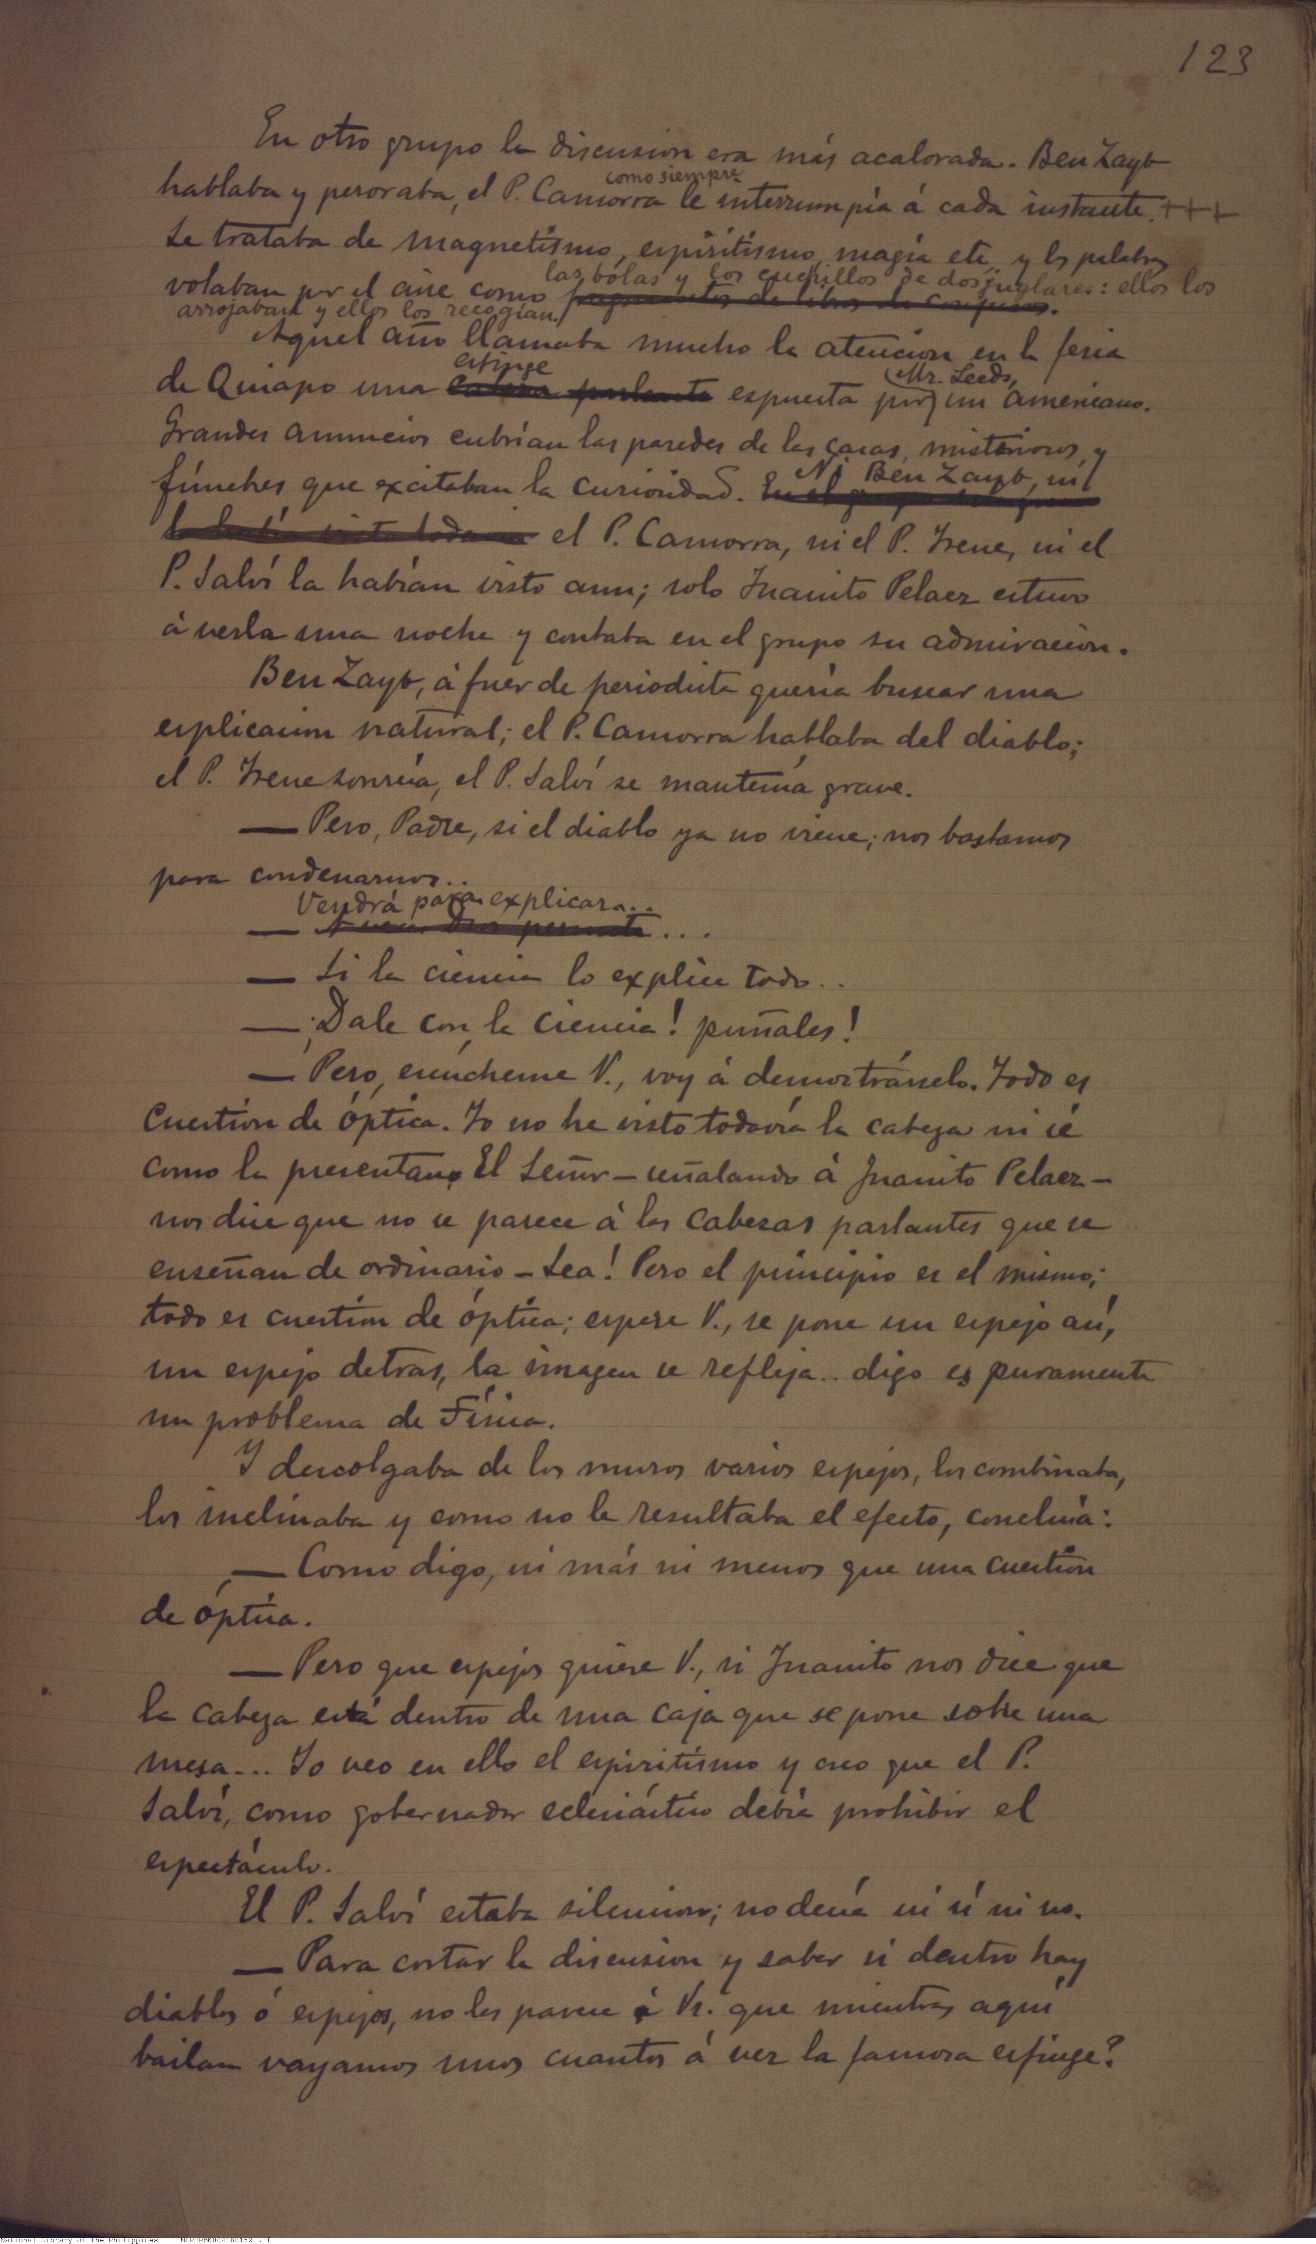 123
En otro grupo la discusion era más acalorada. Ben Zayb
como siempre
hablaba y peroraba, el P. Camorra le interrumpía á cada instante. +++
Se trataba de magnetismo, espiritismo, magia etc y las palabras
las bolas y los cuchillos de dos juglares: ellos los
volaban por el aire como
arrojaban y ellos los recogian.
Aquel año llamaba mucho la atencion en la feria
esfinge
Mr. Leeds,
de Quiapo una cabeza parlante espuesta por un americano.
Grandes anuncios cubrían las paredes de las casas, misteriosos y
Ni Ben Zayb, ni
fúnebres que excitaban la curiosidad.
el P. Camorra, ni el P. Irene, ni el
P. Salví la habían visto aun; solo Juanito Pelaez estuvo
á verla una noche y contaba en el grupo su admiracion.
Ben Zayb, á fuer de periodista quería buscar una
esplicacion natural; el P. Camorra hablaba del diablo;
el P. Irene sonreía, el P. Salví se mantenía grave.
— Pero, Padre, si el diablo ya no viene; nos bastamos
para condenarnos..
Vendrá para explicar...
— ...
— Si la ciencia lo explica todo..
— ¡Dale con la ciencia! puñales!
— Pero, escúcheme V., voy á demostrárselo. Todo es
cuestion de óptica. Yo no he visto todavía la cabeza ni sé
como la presentan. El Señor — señalando á Juanito Pelaez —
nos dice que no se parece á las cabezas parlantes que se
enseñan de ordinario — Sea! Pero el principio es el mismo;
todo es cuestion de óptica; espere V., se pone un espejo así,
un espejo detras, la imagen se refleja.. digo es puramente
un problema de Física.
Y descolgaba de los muros varios espejos, los combinaba,
los inclinaba y como no le resultaba el efecto, concluía:
— Como digo, ni más ni menos que una cuestion
de óptica.
— Pero que espejos quiere V., si Juanito nos dice que
la cabeza está dentro de una caja que se pone sobre una
mesa... Yo veo en ello el espiritismo y creo que el P.
Salví, como gobernador eclesiástico debía prohibir el
espectáculo.
El P. Salví estaba silencioso; no decía ni sí ni no.
— Para cortar la discusion y saber si dentro hay
diablos ó espejos, no les parece á Vs. que mientras aquí
bailan vayamos unos cuantos á ver la famosa esfinge?